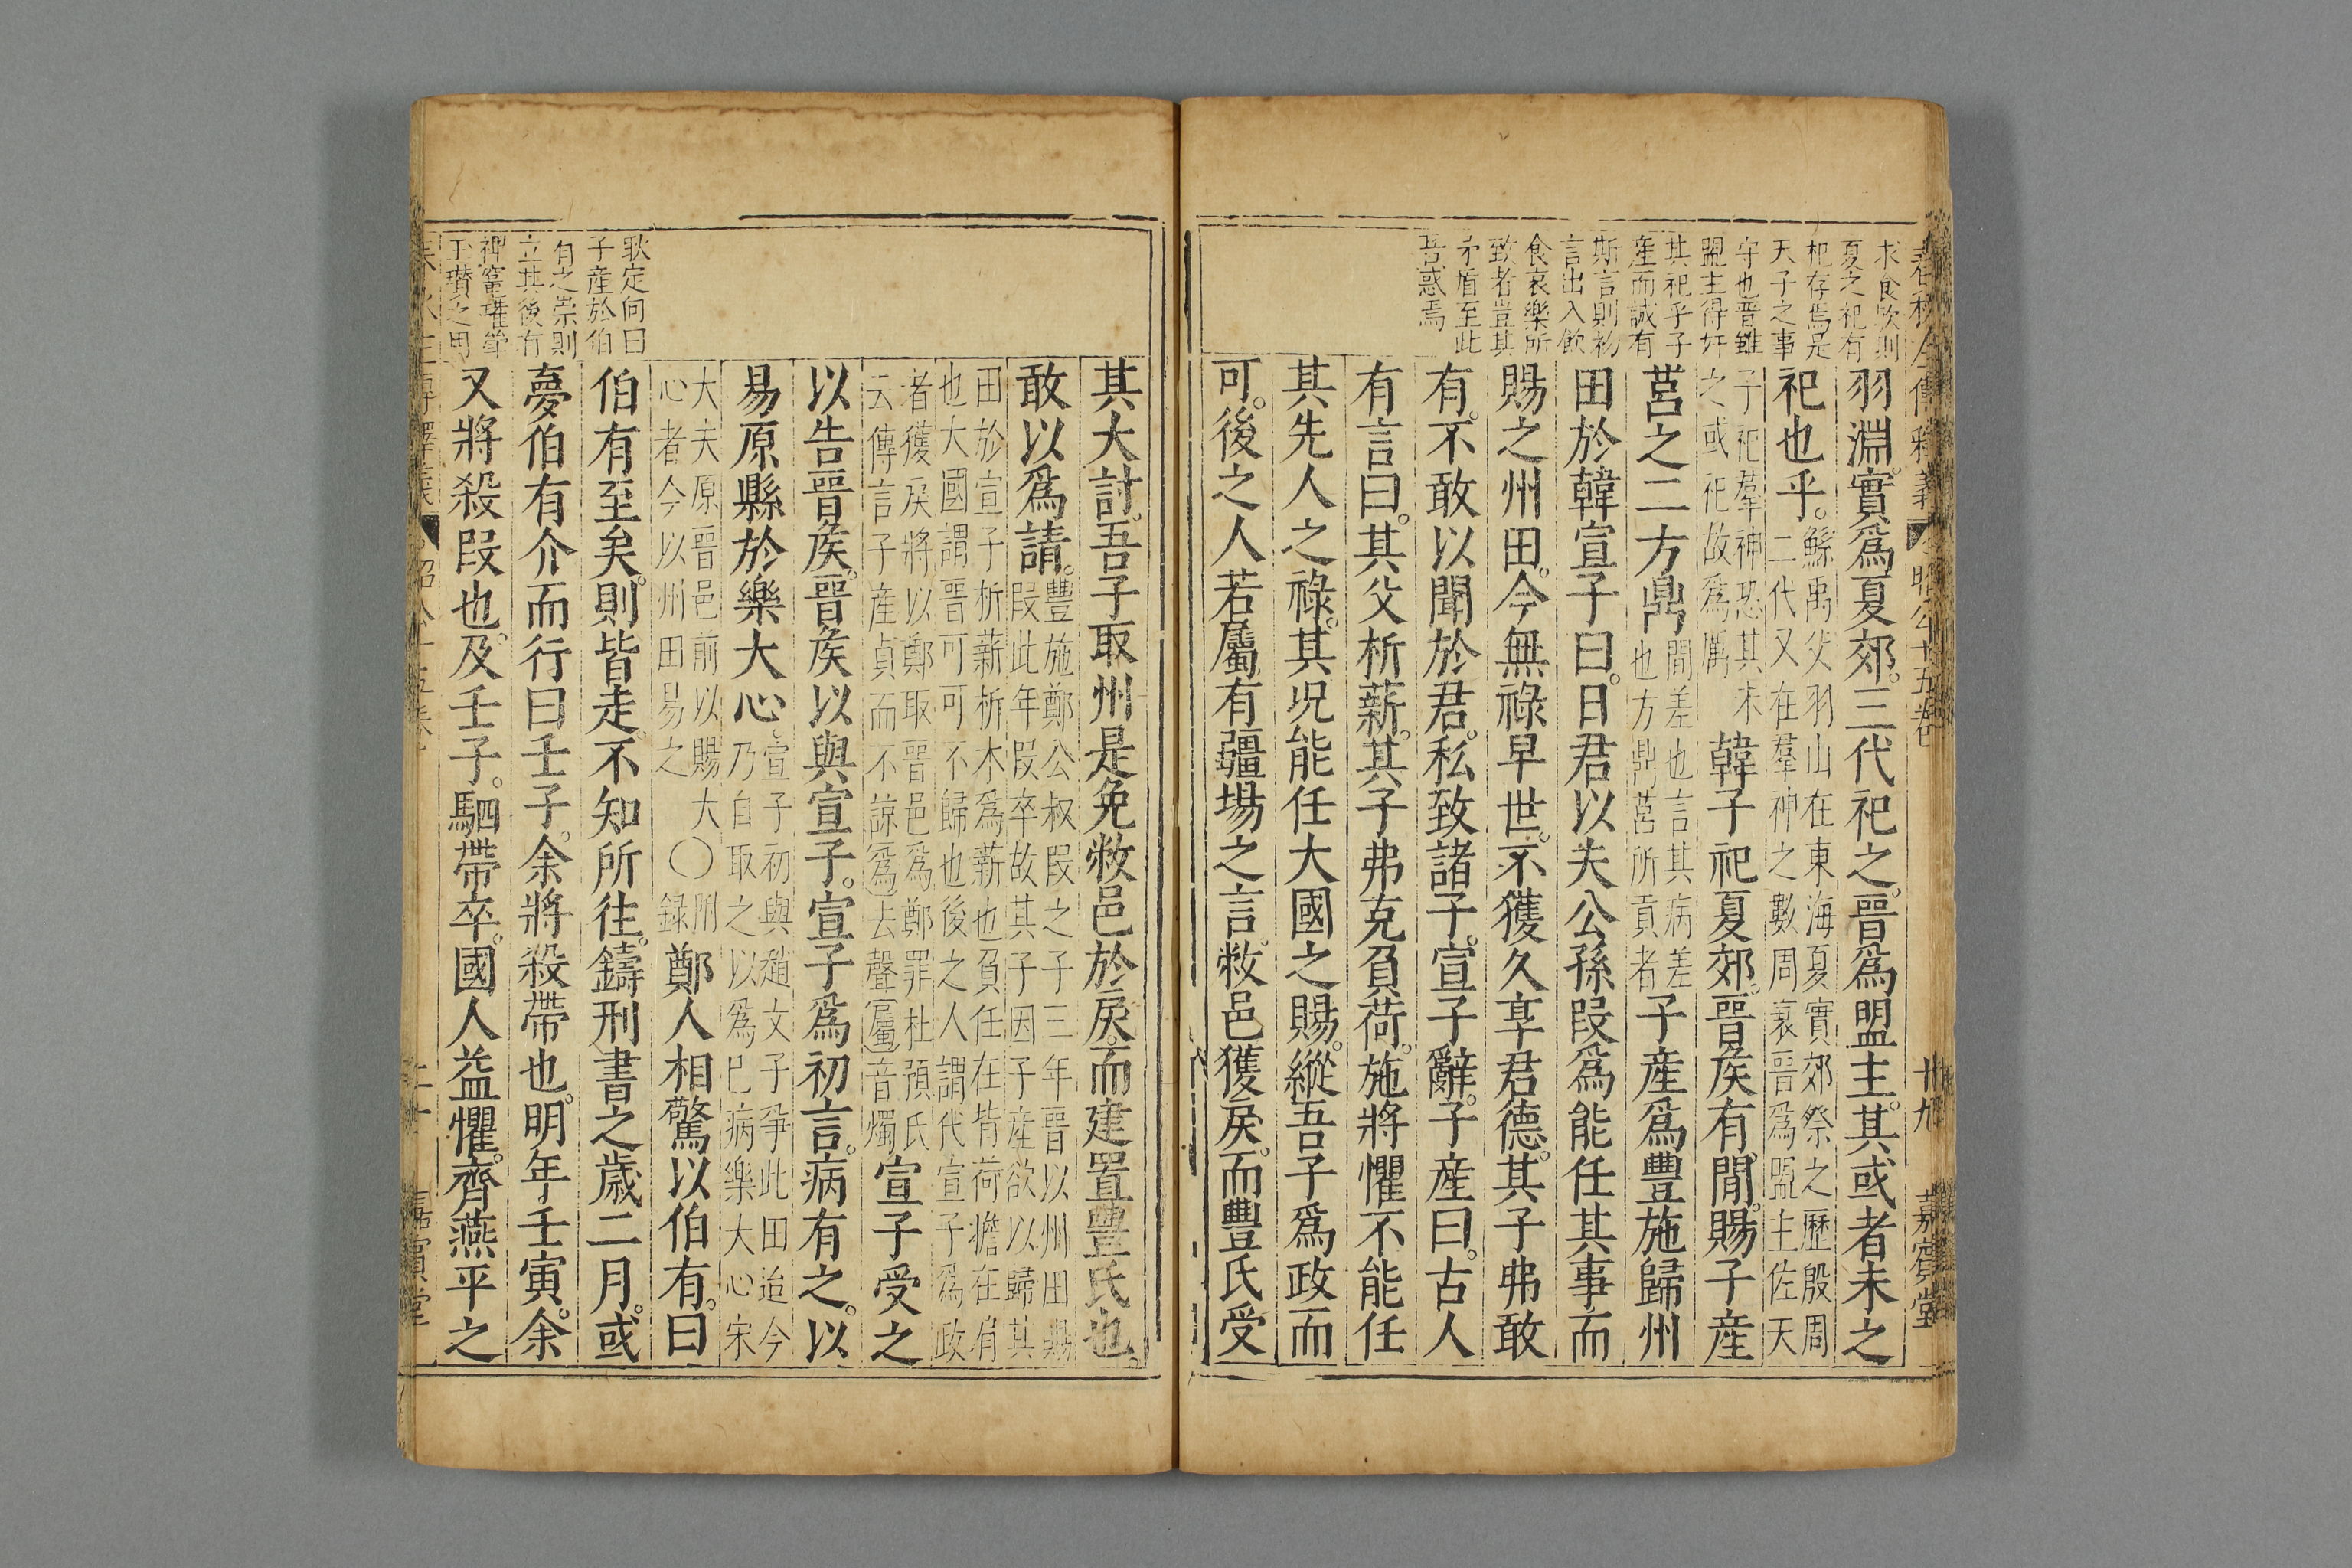 求食欤則
夏之祀有
杞存焉是
天子之事
守也晉雖
盟主得奸
其祀乎子
産而誠有
斯言則初
言出入飲
食哀樂所
致者豈其
矛盾至此
吾惑焉
羽淵。實爲夏郊。三代祀之。晉爲盟主。其或者未之
祀也乎。
鯀禹父羽山在東海夏實郊祭之歷殷周
二代又在羣神之數周衰晉爲盟主佐天
子祀羣神恐其未
之或祀故爲厲
韓子祀夏郊。晉矦有閒。賜子産
莒之二方鼎
間差也言其病差
也方鼎莒所貢者
子産爲豐施歸州
田於韓宣子曰。日君以夫公孫叚爲能任其事而
賜之州田。今無祿早世。不獲久享君德。其子弗敢
有。不敢以聞於君。私致諸子。宣子辭。子産曰。古人
有言曰。其父析薪。其子弗克負荷。施將懼不能任
其先人之祿。其況能任大國之賜。縱吾子爲政而
可。後之人若屬有疆場之言。敝邑獲戾。而豐氏受
其大討。吾子取州是免敝邑於戾。而建置豐氏也。
敢以爲請。
豐施鄭公叔叚之子三年晉以州田賜
叚此年叚卒故其子因子産欲以歸其
田於宣子析薪析木爲薪也負任在背荷擔在肩
也大國謂晉可可不歸也後之人謂代宣子爲政
者獲戾將以鄭取晉邑爲鄭罪杜預氏
云傳言子産貞而不諒爲去聲屬音燭
宣子受之
以告晉矦。晉矦以與宣子。宣子爲初言。病有之。以
易原縣於樂大心。
宣子初與趙文子爭此田迨今
乃自取之以爲己病樂大心宋
大夫原晉邑前以賜大
心者今以州田易之
〇
附
録
鄭人相驚以伯有。曰
伯有至矣。則皆走不知所往。鑄刑書之歲二月。或
夢伯有介而行曰壬子。余將殺帶也。明年壬寅。余
又將殺叚也。及壬子。駟帶卒。國人益懼。齊燕平之
耿定向曰
子産於伯
有之祟則
立其後有
禆竈瓘斚
玉瓉之用
卅九
嘉賓堂
嘉賓堂